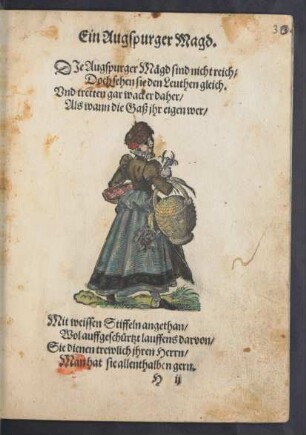 Ein Augspurger Magd.
DIe Augspurger Mägd sind nicht reich/
Doch sehen sie den Leuthen gleich.
Vnd tretten gar wacker daher/
Als wann die Gaß ihr eigen wer/
Mit weissen Stiffeln angethan/
Wol auffgeschürtzt lauffens darvon/
Sie dienen trewlich ihren Herrn/
Man hat sie allenthalben gern.
H ij